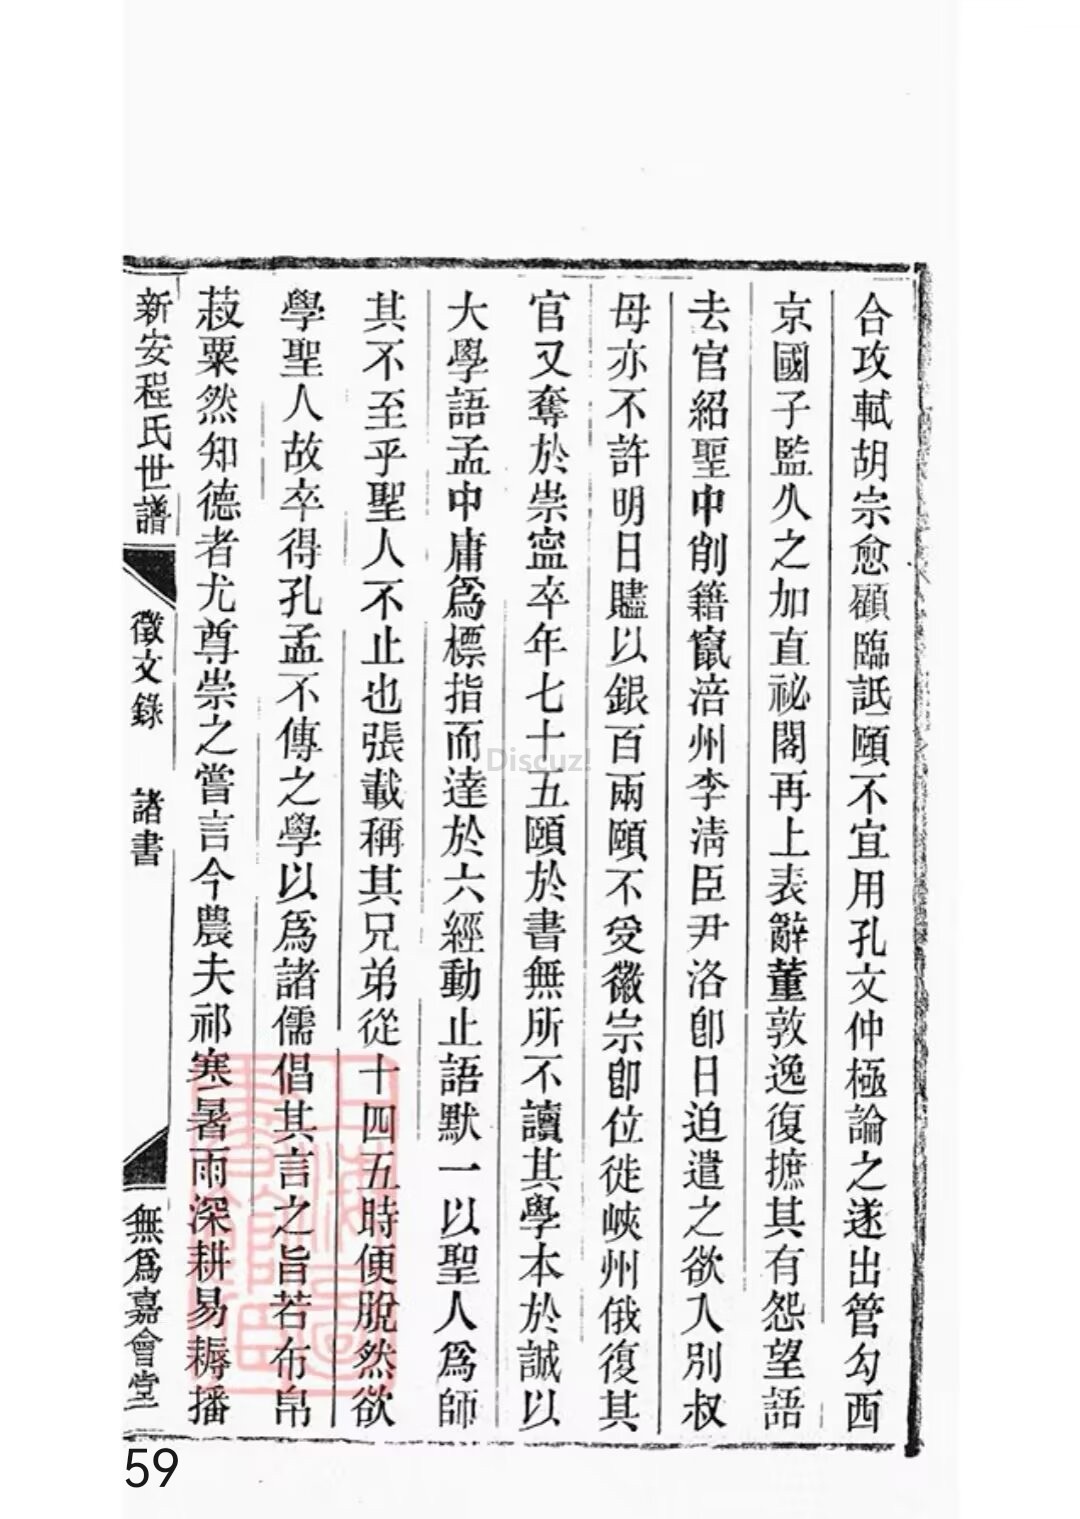 合攻軾胡宗愈顧臨詆頤不宜用孔文仲極論之遂出管勾西
京國子監久之加直祕閣再上表辭董敦逸復摭其有怨望語
去官紹聖中削籍竄涪州李清臣尹洛卽日迫遣之欲入別叔
母亦不許明日贐以銀百兩頤不受徽宗卽位徙峽州俄復其
官又奪於崇寍卒年七十五頤於書無所不讀其學本於誠以
大學語孟中庸爲標指而達於六經動止語默一以聖人爲師
其不至乎聖人不止也張載稱其兄弟從十四五時便脫然欲
學聖人故卒得孔孟不傳之學以爲諸儒倡其言之旨若布帛
菽粟然知德者尤尊崇之嘗言今農夫祁寒暑雨深耕易耨播
新安程氏世譜
徵文錄
諸書
無爲嘉會堂
59
Discuz!